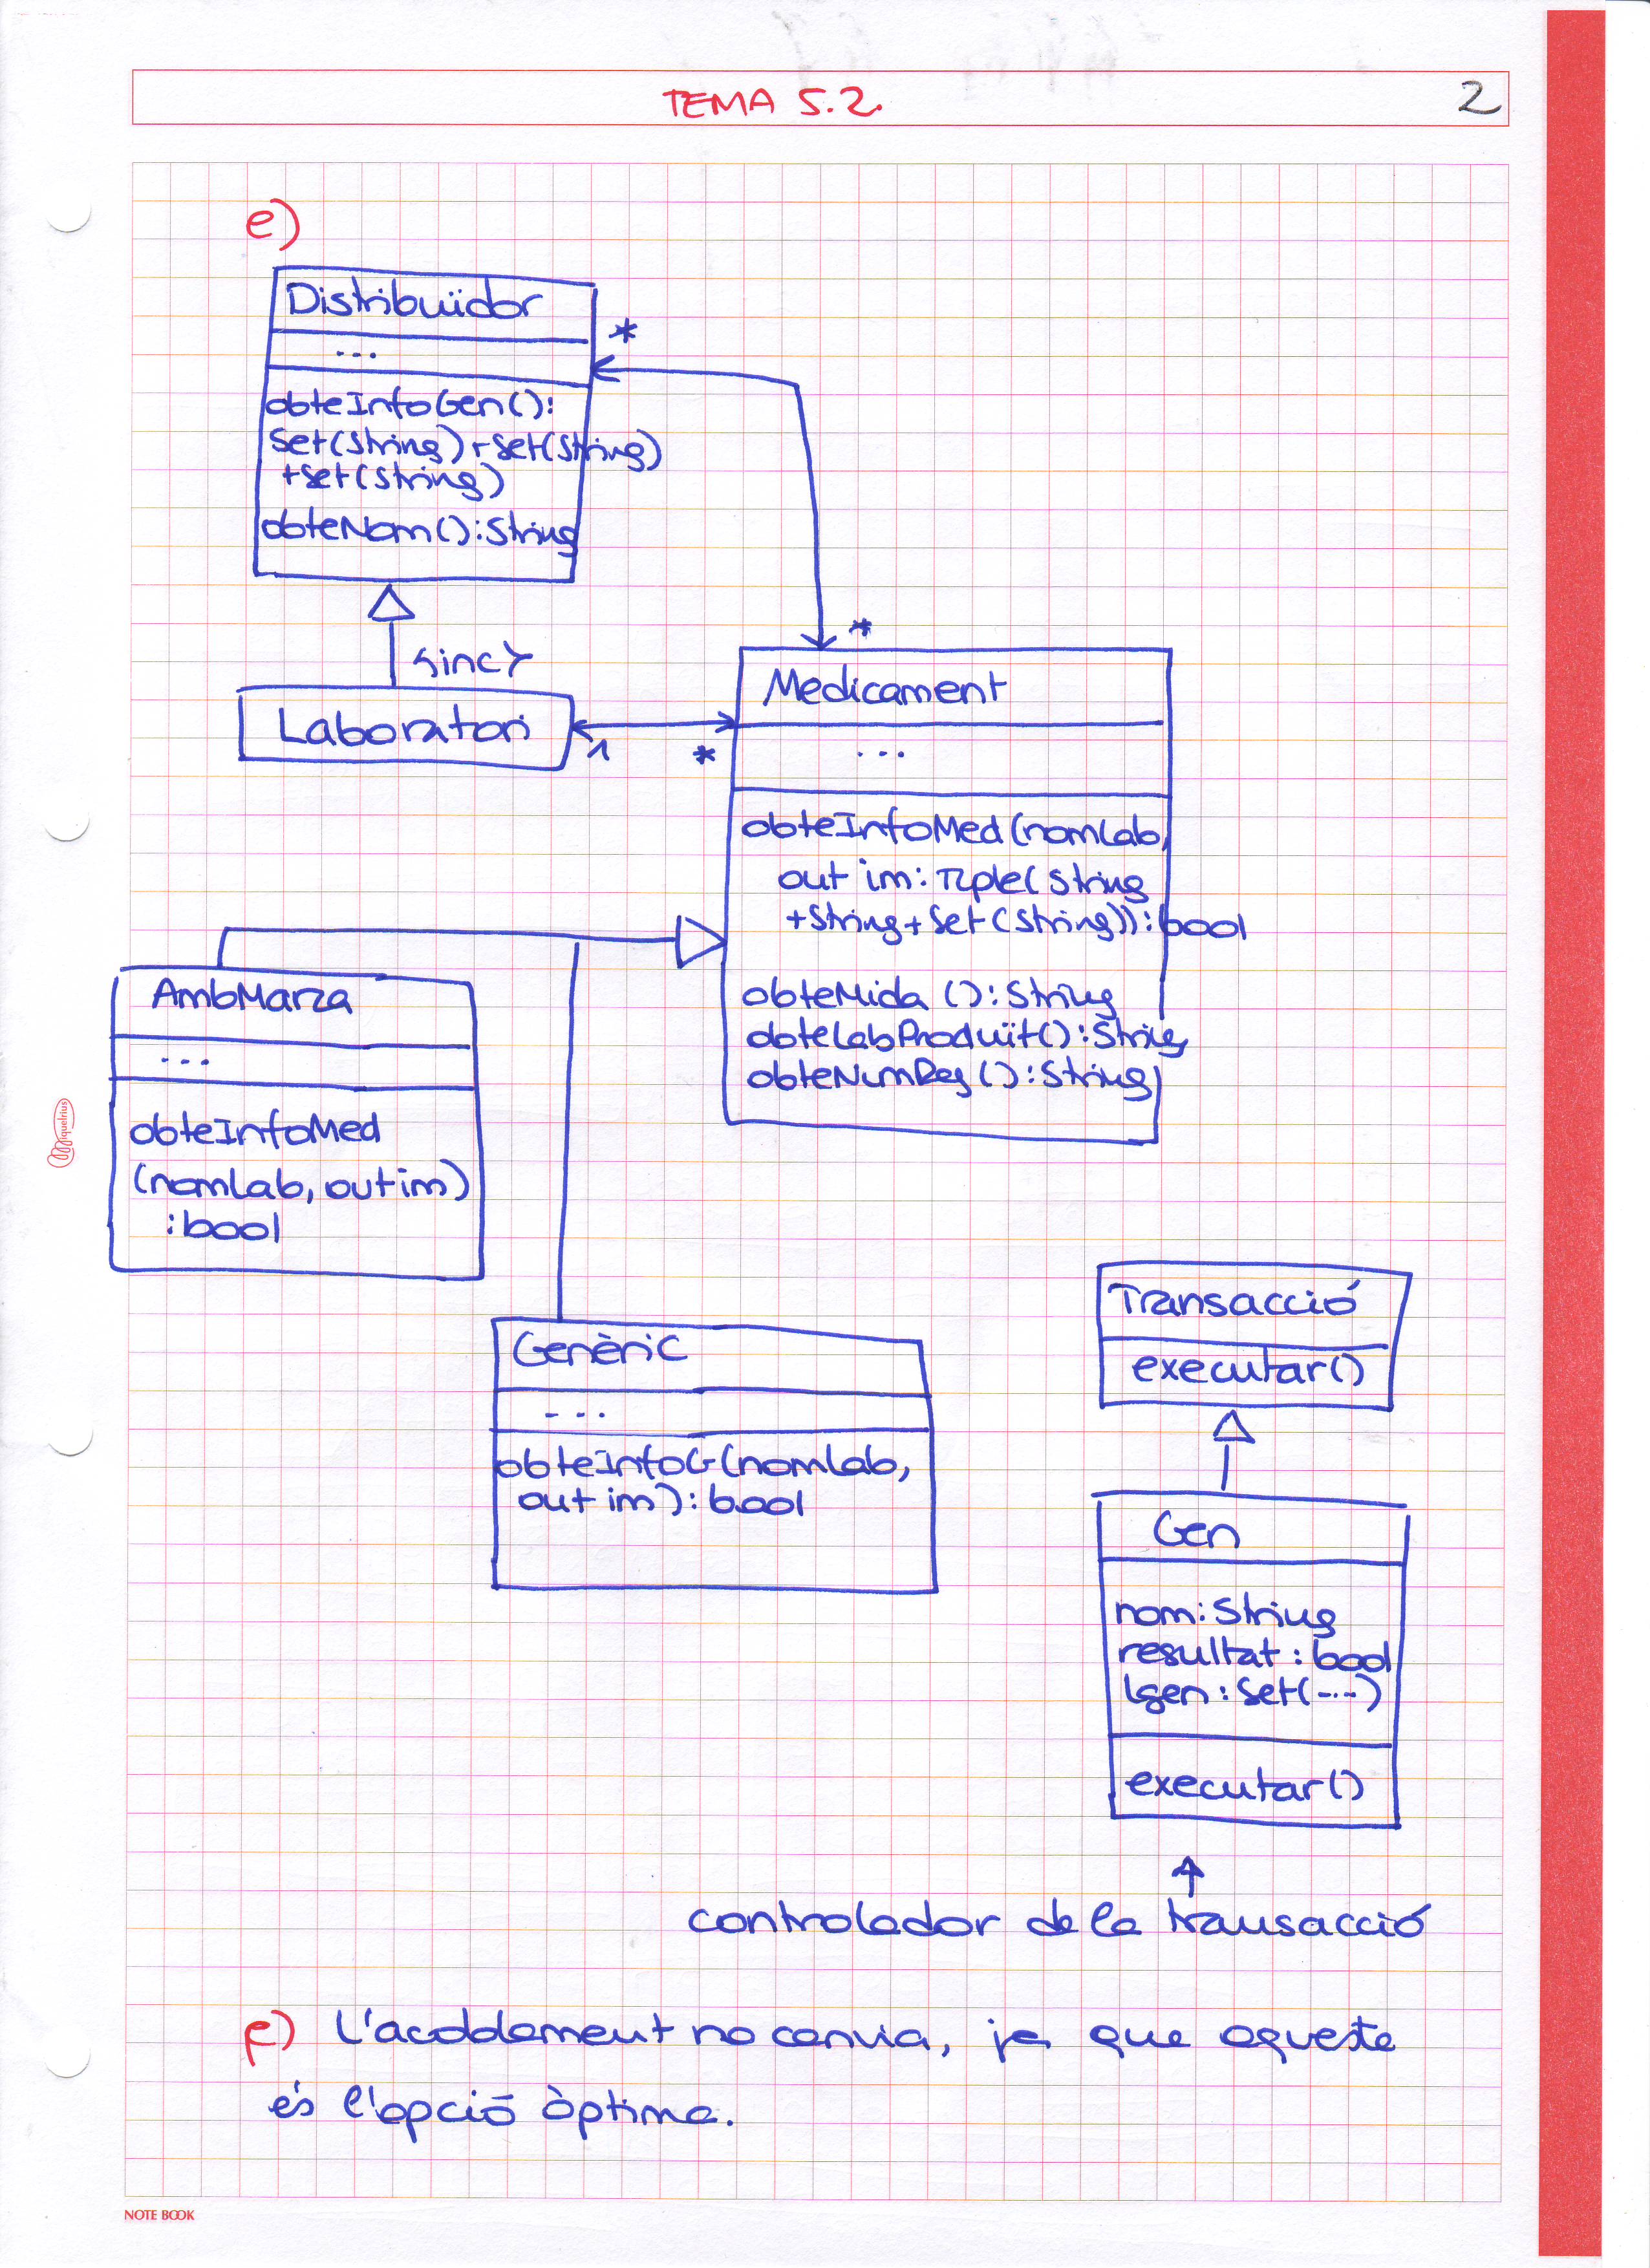 TEMA 5.2.
2
e)
Distribuïdor
...
*
obteInfoGen():
Set(String)+Set(String)
+Set(String)
obteNom():String
{inc}
Laboratori
1
*
*
Medicament
...
obteInfoMed(nomLab,
out im: Tuple(String
+String+Set(String)):bool
obteMida():String
obteLabProduït():String
obteNumReg():String
AmbMarca
...
obteInfoMed
(nomLab, out im)
:bool
Genèric
...
obteInfoG(nomLab,
out im): bool
Transacció
executar()
Gen
nom:String
resultat:bool
lgen:Set(....)
executar()
controlador de la transacció
f) L'acoblament no canvia, ja que aquesta
és l'opció òptima.
miquelrius
NOTE BOOK